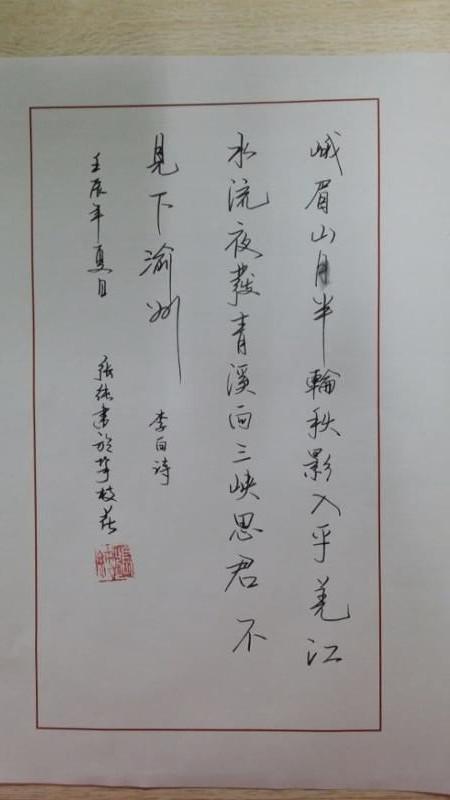 峨眉山月半輪秋影入平羌江
水流夜發青溪向三峽思君不
見下渝州
李白詩
壬辰年夏日
張純書於攀枝花